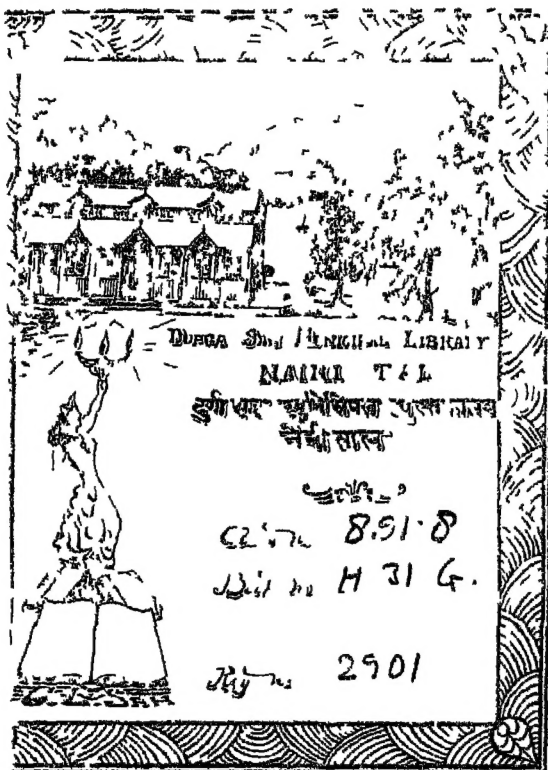 DURGA SAH MUNICIPAL LIBRARY
NAINI TAL
दुर्गा साह म्युनिसिपल पुस्तकालय
नैनीताल
Class no 8.91.8
Book no H 31 G.
Reg no 2901